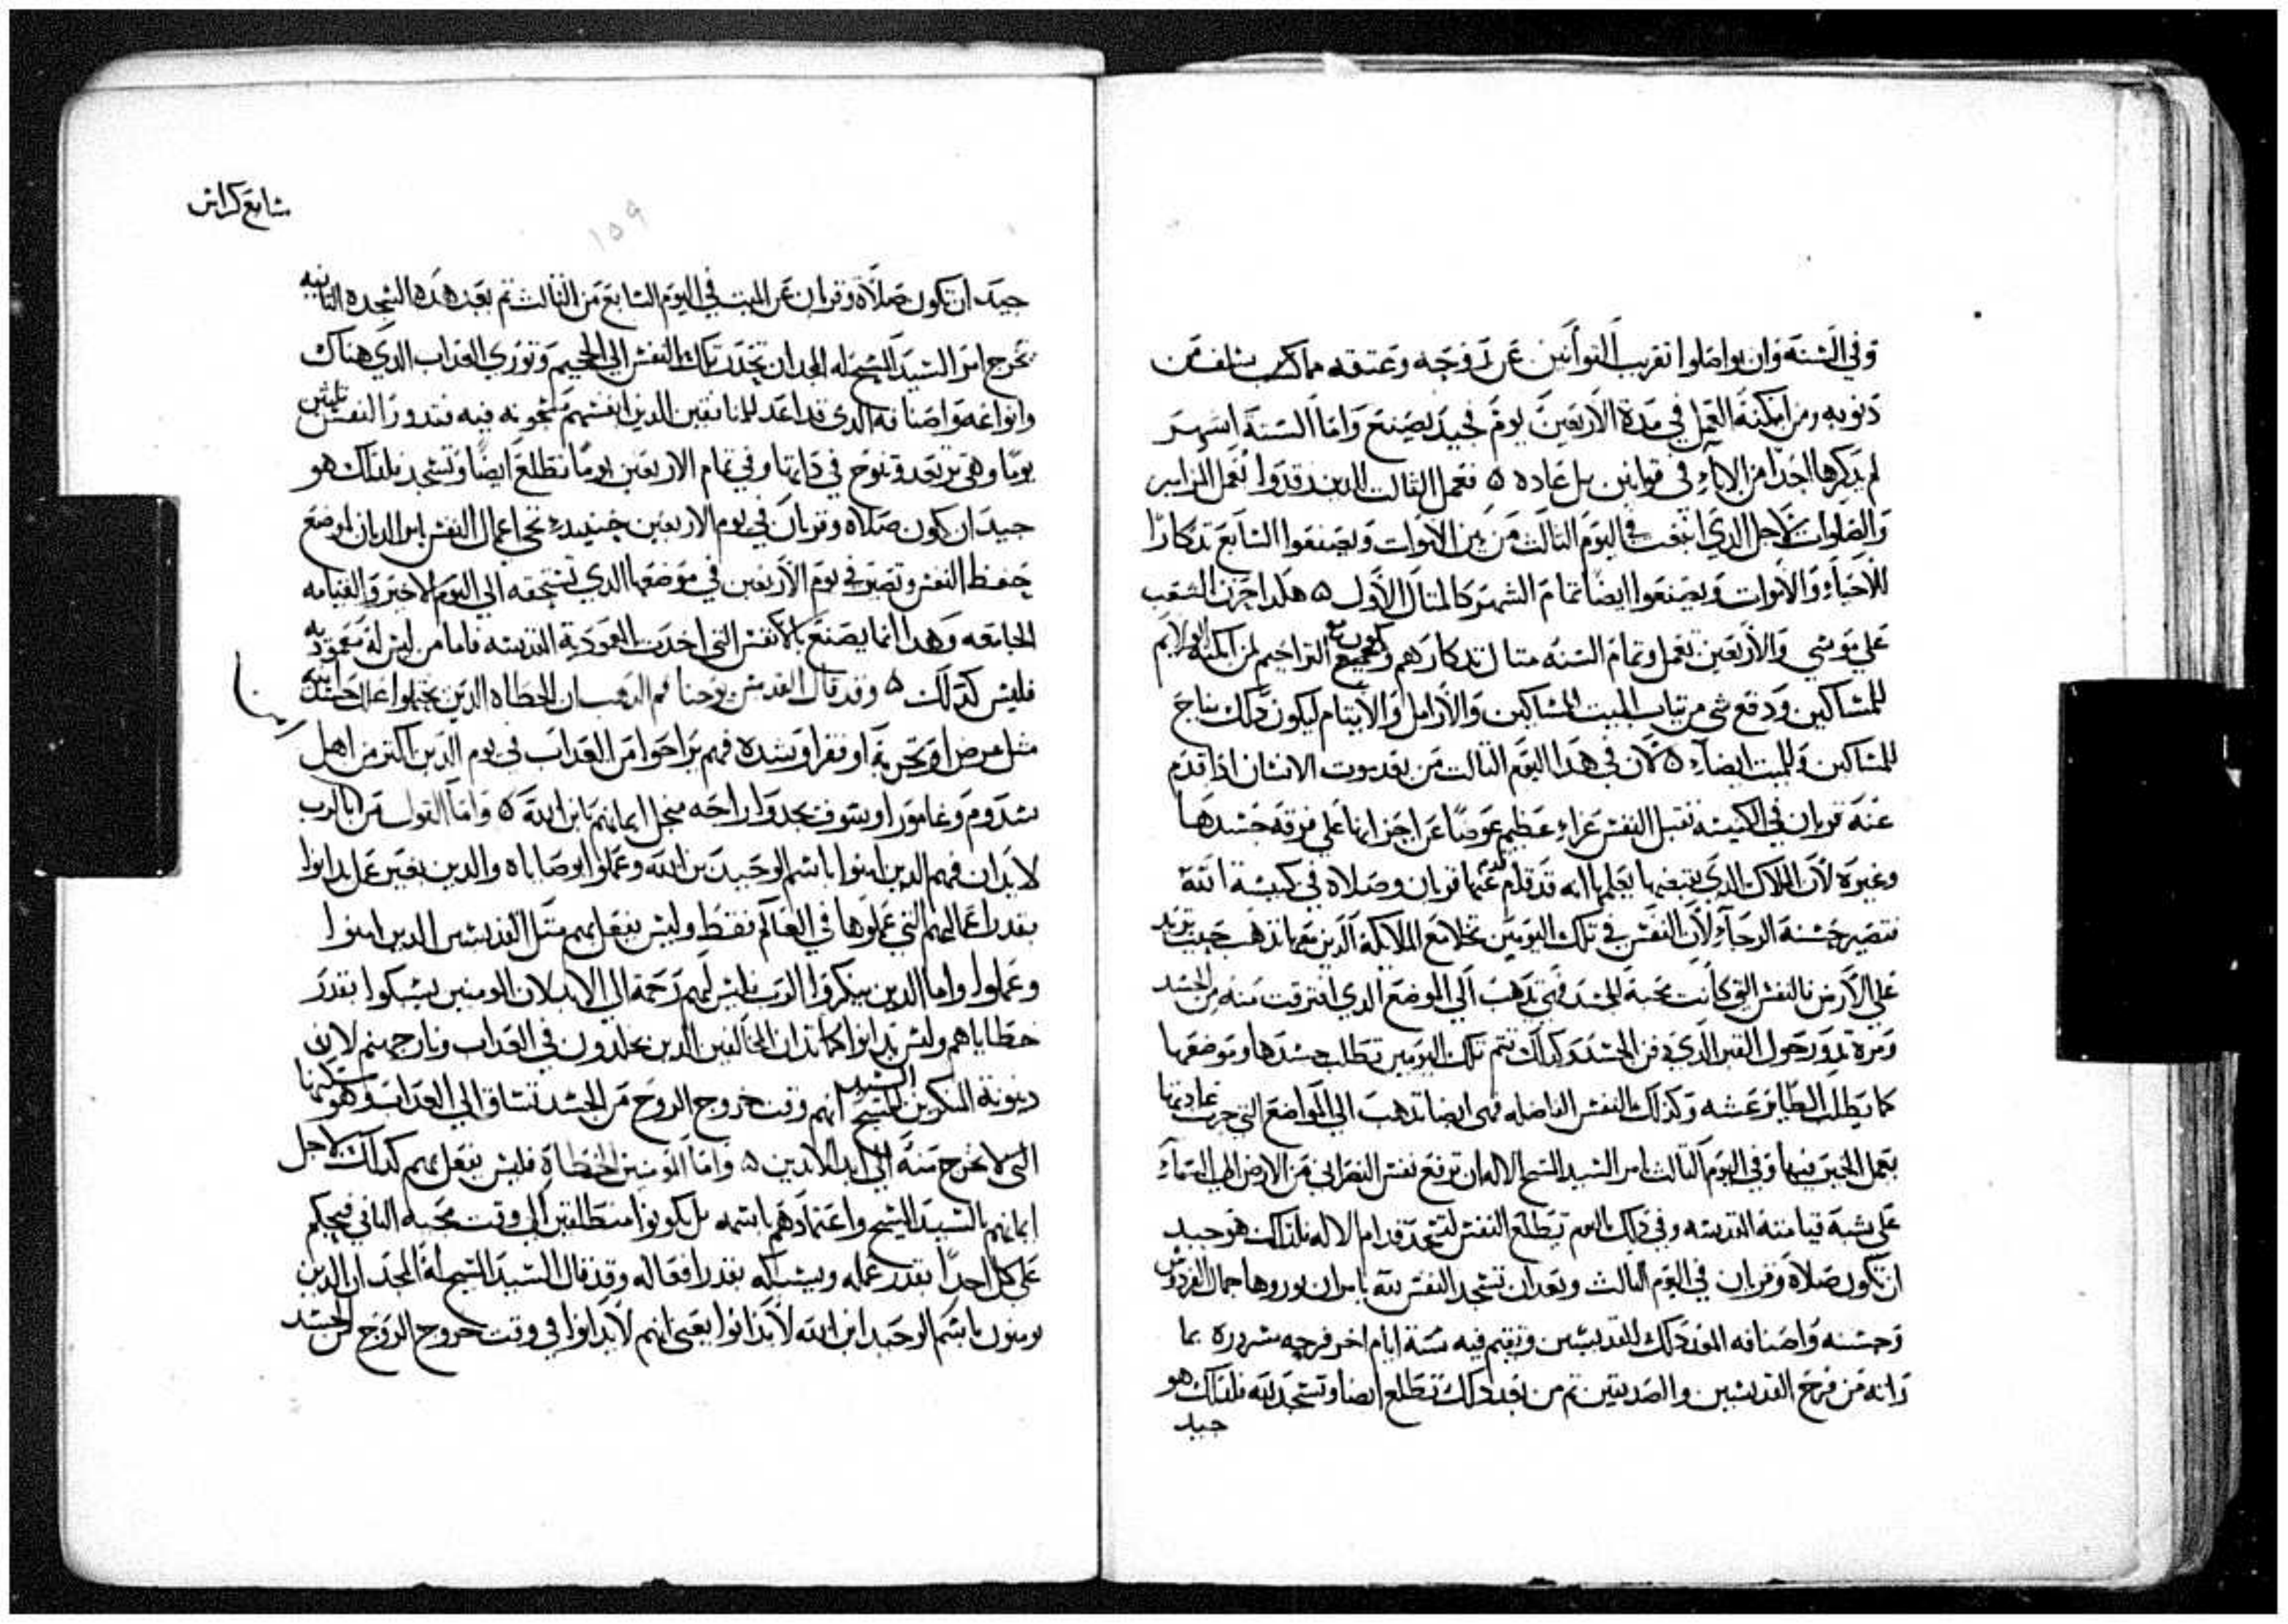 وفي السنه وان يواصلوا تقريب القوانين عن روحه وعتقه مما كسب سلف من
دنوبه ومن امكنه العمل في مدة الاربعين يوم فجيد يصنع واما الستة اشهر
لم يدكرها احدا من الاباء في قوانين بل عاده ۞ فعمل الثالث للدين رقدوا تعمل المزامير
والصلوات لاجل الدي انبعث في اليوم الثالث من بين الاموات ويصنعوا السابع تدكارا
للاحياء والاموات ويصنعوا ايضا تمام الشهر كالمثال الاول ۞ هكدا حزن الشعب
على موسى والاربعين تعمل وتمام السنه مثال تدكارهم التراحيم لمن امكنه
للمساكين ودفع شي من تياب الميت للمساكين والارامل والايتام ليكون دلك نياح
للمساكين وللميت ايضاء ۞ لان في هدا اليوم الثالث من بعد موت الانسان ادا قدم
عنه قربان في الكنيسه تقبل النفس عزاء عظيم عوضا عن احزانها على فرقه جسدها
وغيره لان الملاك الدي يقبضها يعلمها انه قد قدام عنها قربان وصلاه في كنيسة الله
فتصير حسنة الرجاء لان النفس في تلك اليومين تخلا مع الملايكة الدين معها تدهب حيث تريد
على الارض فالنفس التي كانت محبة للجسد فهي تدهب الى الموضع الدي افترقت منه من الجسد
ومرة تدور حول القبر الدي دفن الجسد وكدلك تتم تلك اليومين تطلب جسدها وموضعها
كما يطلب الطاير عشه وكدلك النفس الفاضله فهى ايضا تدهب الى المواضع التي جرت عادتها
بعمل الخير فيها وفي اليوم الثالث امر السيد المسيح الاله ان ترفع نفس النصراني من الارض الي السماء
على شبه قيامته القديسه وفي دلك اليوم تطلع النفس لتسجد قدام الاله فلدلك هو جيد
ان تكون صلاه وقربان في اليوم الثالث وبعد ان تسجد النفس لله يامر ان يوروها جمال الفردوس
وحسنه واصنافه المعد دلك للقديسين وتقيم فيه ستة ايام اخر فرحه مسروره بما
راته من فرح القديسين والصديقين تم من بعد دلك تطلع ايضا وتسجد لله فلدلك هو
جيد
سابع كراس
١٥٩
جيد ان تكون صلاه وقربان عن الميت في اليوم السابع من الثالث تم بعد هده السجده التانيه
تخرج امر السيد المسيح له المجد ان تحدر تلك النفس الى الجحيم وتوري العداب الدي هناك
وانواعه واصنافه الدي قد اعد للمنافقين الدين انفسهم مسجونه فيه فتدور النفس تلتين
يوما وهى ترتعد وتنوح في داتها وفي تمام الاربعين يوما تطلع ايضا وتسجد فلدلك هو
جيد ان تكون صلاه وقربان في يوم الاربعين حينيد تحي اعمال النفس امر الديان لموضع
حفظ النفس وتصير في يوم الاربعين في موضعها الدي تستحقه الي اليوم الاخير والقيامه
الجامعه وهدا انما يصنع بالانفس التي اخدت المعمودية القديسه فاما من ليس له معموديه
فليس كدلك ۞ وقد قال القديس يوحنا فم الدهب ان الخطاه الدين
مثل مرض او تجربة او فقر او شده فهم يراحوا من العداب في يوم الدين اكتر من اهل
سدوم وغامورا وسوف يجدوا راحه من اجل ايمانهم بابن الله ۞ واما القول من الرب
لا يدان فهم الدين امنوا باسم الوحيد بن الله وعملوا بوصاياه والدين بغير عمل يدانوا
بقدر اعمالهم التي عملوها في العالم فقط وليس يفعل بهم متل القديسين الدين امنوا
وعملوا واما الدين ينكروا الرب فليس لهم رحمة الى الابد لان المومنين يشكوا بقدر
خطاياهم وليس يدانوا كما تدان المخالفين الدين يخلدون في العداب ونار جهنم لان
دينونة المنكرين السيد المسيح انهم وقت خروج الروح من الجسد تساق الي العداب وهو
التي لا تخرج منه الى ابد الابدين ۞ واما المومنين الخطاه فليس يفعل بهم كدلك لاجل
ايمانهم بالسيد المسيح واعتمادهم باسمه بل يكونوا منطلقين الى وقت مجيه التاني فيحكم
على كل احدا بقدر عمله ويشكه بقدر افعاله وقد قال السيد المسيح له المجد ان الدين
يومنون باسم الوحيد ابن الله لا يدانوا يعني انهم لا يدانوا في وقت خروج الروح من الجسد